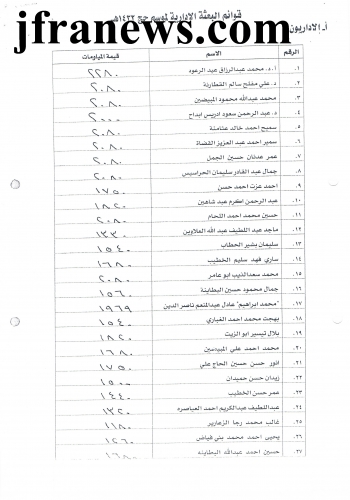 قوائم البعثة الادارية لموسم حج ١٤٣٢هـ
jfranews.com
أ. الاداريون
الرقم الاسم قيمة المياومات
١. أ.د. محمد عبدالرزاق عبد الرعود ٢٢٨٠
٢. د. علي مفلح سالم القطارنة ٢٠٨٠
٣. محمد عبدالله محمود المبيضين ٢٠٨٠
٤. د. عبد الرحمن سعود ادريس ابداح ٢٠٠٠
٥. سميح احمد خالد عثامنة ٢٠٨٠
٦. سمير احمد عبد العزيز القضاة ٢٠٨٠
٧. عمر عدنان حسين الجمل ٢٠٨٠
٨. جمال عبد القادر سليمان الحراسيس ٢٠٨٠
٩. احمد عزت احمد حسن ١٧٥٠
١٠. عبد الرحمن اكرم عبد شاهين ١٨٢٠
١١. حسين محمد احمد اللحام ٢٠٨٠
١٢. ماجد عبد اللطيف عبد الله العلاوين ١٣٣٠
١٣. سليمان بشير الخطاب ١٥٤٠
١٤. ساري فهد سليم الخطيب ١٦٨٠
١٥. محمد سعدالذيب ابو عامر ٢٠٨٠
١٦. جمال محمود حسين البطاينة ١٥٦٠
١٧. "محمد ابراهيم" عادل عبدالمنعم ناصر الدين ١٩٦٩
١٨. بهجت محمد احمد الغباري ١٥٤٠
١٩. بلال تيسير ابو الزيت ١٨٢٠
٢٠. محمد احمد علي المبيضين ١٦٨٠
٢١. انور حسن حسين الحاج علي ١٧٥٠
٢٢. زيدان حسن حميدان ١٥٠٠
٢٣. عمر حسن الخطيب ١٤٤٠
٢٤. عبداللطيف عبدالكريم احمد العياصره ١٣٢٠
٢٥. غالب محمد رجا الزعارير ١١٨٠
٢٦. يحيى احمد محمد بني فياض ١٢٦٠
٢٧. حسين احمد عبدالله البطاينه ١٦٨٠